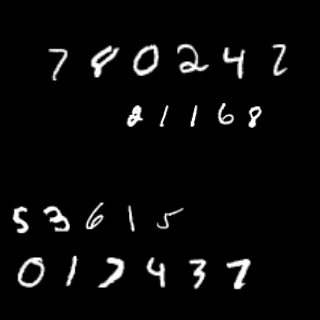 780242
21168
53615
017437